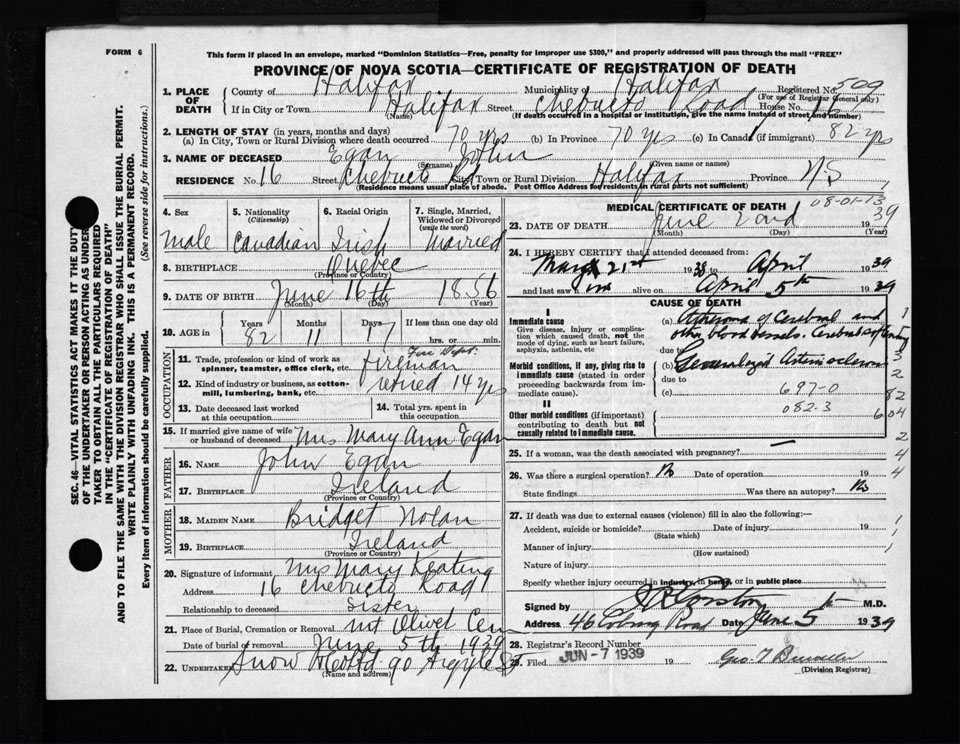 FORM 6
This form if placed in an envelope, marked "Dominion Statistics—Free, penalty for improper use $300," and properly addressed will pass through the mail "FREE"
PROVINCE OF NOVA SCOTIA—CERTIFICATE OF REGISTRATION OF DEATH
1. PLACE OF DEATH County of Halifax Municipality of Halifax Registered No. 509
(For use of Registrar General only)
If in City or Town Halifax Street Chebucto Road House No. 16
(Name) (If death occurred in a hospital or institution, give the name instead of street and number)
2. LENGTH OF STAY (in years, months and days)
(a) In City, Town or Rural Division where death occurred 70 yrs (b) In Province 70 yrs (c) In Canada (if immigrant) 82 yrs
3. NAME OF DECEASED Egan John
(Surname) (Given name or names)
RESIDENCE No. 16 Street Chebucto Rd City, Town or Rural Division Halifax Province NS
(Residence means usual place of abode. Post Office Address for residents in rural parts not sufficient)
4. Sex male
5. Nationality (Citizenship) Canadian
6. Racial Origin Irish
7. Single, Married, Widowed or Divorced (write the word) Married
8. BIRTHPLACE Quebec
(Province or Country)
9. DATE OF BIRTH June 16th 1856
(Month) (Day) (Year)
10. AGE in Years Months Days If less than one day old
82 11 7 hrs. or min.
OCCUPATION
11. Trade, profession or kind of work as spinner, teamster, office clerk, etc. fireman Fire Dept.
12. Kind of industry or business, as cotton-mill, lumbering, bank, etc. retired 14 yrs
13. Date deceased last worked at this occupation
14. Total yrs. spent in this occupation
15. If married give name of wife or husband of deceased Mrs Mary Ann Egan
FATHER
16. NAME John Egan
17. BIRTHPLACE Ireland
(Province or Country)
MOTHER
18. MAIDEN NAME Bridget Nolan
19. BIRTHPLACE Ireland
(Province or Country)
20. Signature of informant Mrs Mary Keating
Address 16 Chebucto Road
Relationship to deceased sister
21. Place of Burial, Cremation or Removal Mt Olivet Cem
Date of burial or removal June 5th 1939
22. UNDERTAKER Snow 90 Argyle St
(Name and address)
MEDICAL CERTIFICATE OF DEATH
08-01-13
23. DATE OF DEATH June 2nd 1939
(Month) (Day) (Year)
24. I HEREBY CERTIFY that I attended deceased from:
March 21st 1939 to April 1939
and last saw him alive on April 5th 1939
CAUSE OF DEATH
I
Immediate cause
Give disease, injury or complication which caused death, not the mode of dying, such as heart failure, asphyxia, asthenia, etc
(a) Atheroma of Cerebral and
other blood vessels.
due to
Morbid conditions, if any, giving rise to immediate cause (stated in order proceeding backwards from immediate cause).
(b) Generalized Arteriosclerosis
due to
(c) 697-0
082-3
II
Other morbid conditions (if important) contributing to death but not causally related to immediate cause.
25. If a woman, was the death associated with pregnancy?
26. Was there a surgical operation? No Date of operation 19
State findings Was there an autopsy? No
27. If death was due to external causes (violence) fill in also the following:—
Accident, suicide or homicide? Date of injury 19
(State which)
Manner of injury
(How sustained)
Nature of injury
Specify whether injury occurred in industry, in home, or in public place
Signed by M.D.
Address 46 Coburg Road Date June 5th 1939
28. Registrar's Record Number
29. Filed JUN -7 1939 19
(Division Registrar)
SEC. 46—VITAL STATISTICS ACT MAKES IT THE DUTY
OF THE UNDERTAKER OR PERSON ACTING AS UNDERTAKER TO OBTAIN ALL THE PARTICULARS REQUIRED
IN THE "CERTIFICATE OF REGISTRATION OF DEATH"
AND TO FILE THE SAME WITH THE DIVISION REGISTRAR WHO SHALL ISSUE THE BURIAL PERMIT.
WRITE PLAINLY WITH UNFADING INK. THIS IS A PERMANENT RECORD.
Every item of information should be carefully supplied. (See reverse side for instructions.)